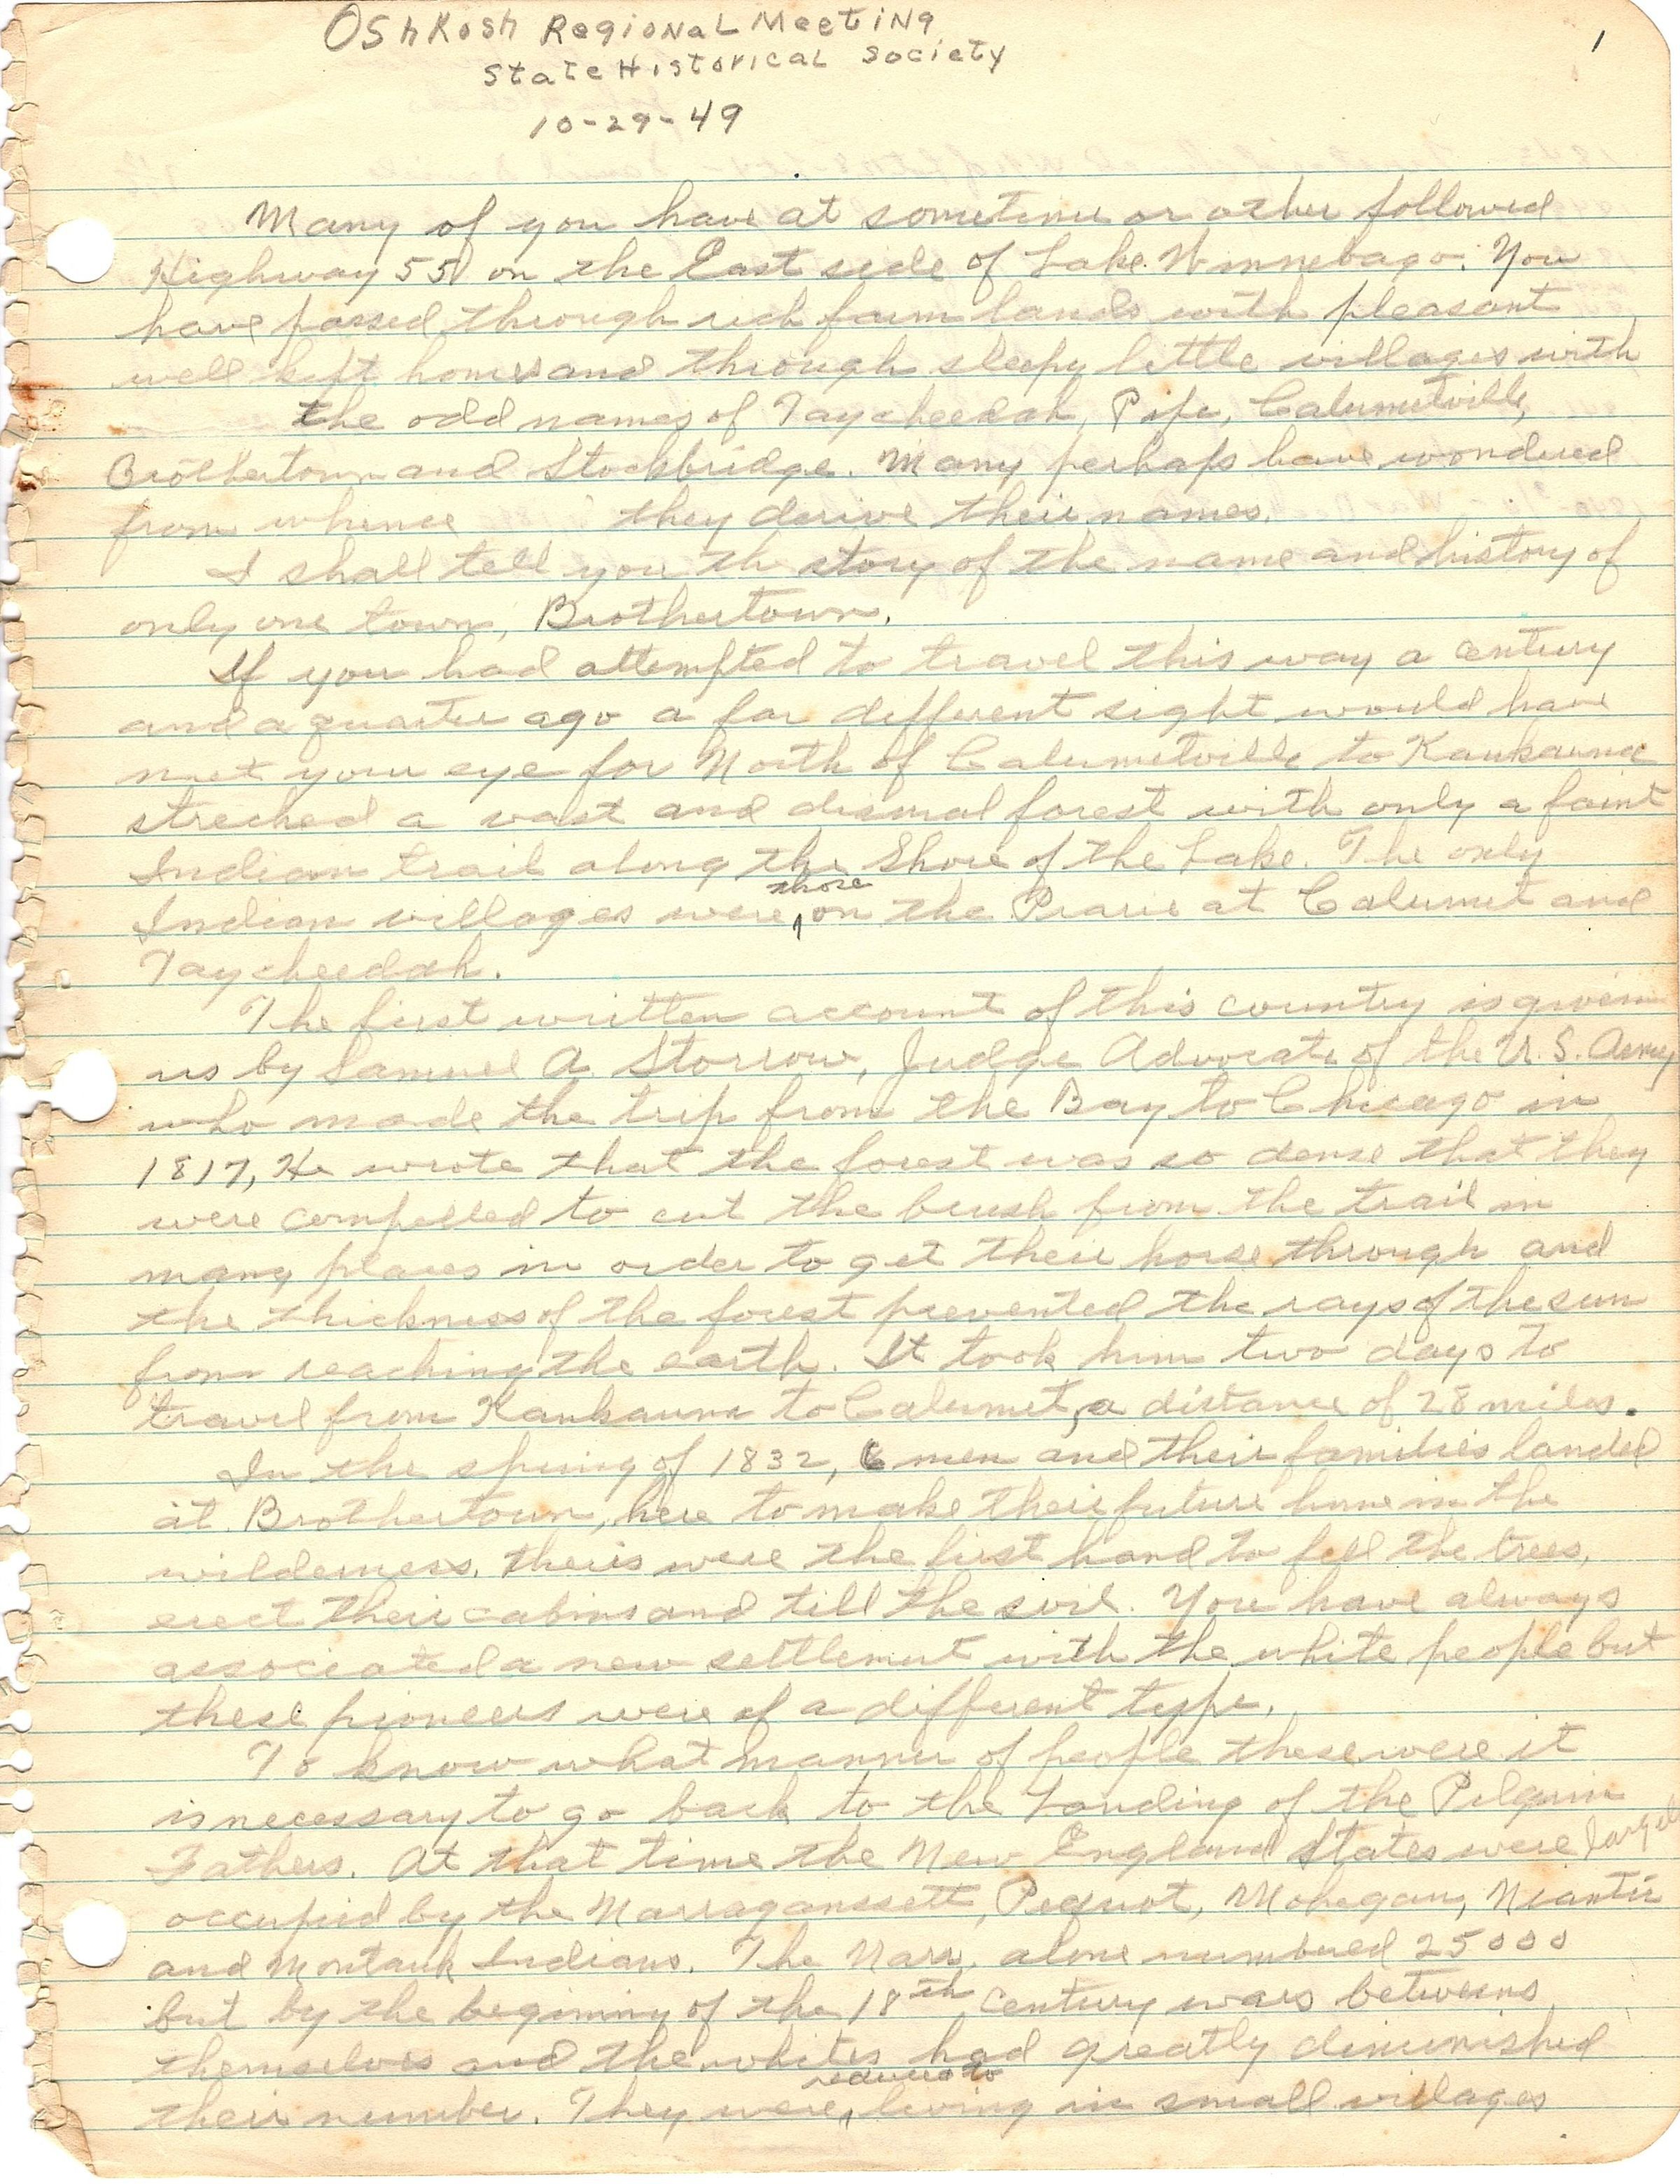 Oshkosh Regional Meeting
State Historical Society
10-29-49
1
Many of you have at sometime or other followed
Highway 55 on the East side of Lake Winnebago. You
have passed through rich farm lands with pleasant
well kept homes and through sleepy little villages with
the odd names of Taycheedah, Pipe, Calumetville,
Brothertown and Stockbridge. Many perhaps have wondered
from whence they derive their names.
I shall tell you th story of the name and history of
only one town, Brothertown.
If you had attempted to travel this way a century
and a quarter ago a far different sight would have
met your eye for North of Calumetville to Kaukauna
streched a vast and dismal forest with only a faint
Indian trail along the Shore of the Lake. The only
Indian villages were those on the Prarie at Calumet and
Taycheedah.
The first written account of this country is given
us by Samuel A. Storrow, Judge Advocate of the U.S. Army
who made the trip from the Bay to Chicago in
1817, He wrote that the forest was so dense that they
were compelled to cut the brush from the trail in
many places in order to get their horse through and
the thickness of the forest prevented the rays of the sun
from reaching the earth. It took him two days to
travel from Kaukauna to Calumet, a distance of 28 miles.
In the spring of 1832, 6 men and their families landed
at Brothertown, here to make their future home in the
wilderness. theirs were the first hand to fell the trees,
erect their cabins and till the soil. You have always
associated a new settlement with the white people but
these pioneers were of a different type.
To know what manner of people these were it
is necessary to go back to the Landing of the Pilgrim
Fathers. At that time the New England States were largely
occupied by the Narraganssett, Pequot, Mohegan, Niantic
and Montauk Indians. The Narr. alone numbered 25000
but by the begining of the 18th century wars betweens
themselves and the whites had greatly diminished
their number. They were reduced to living in small villages